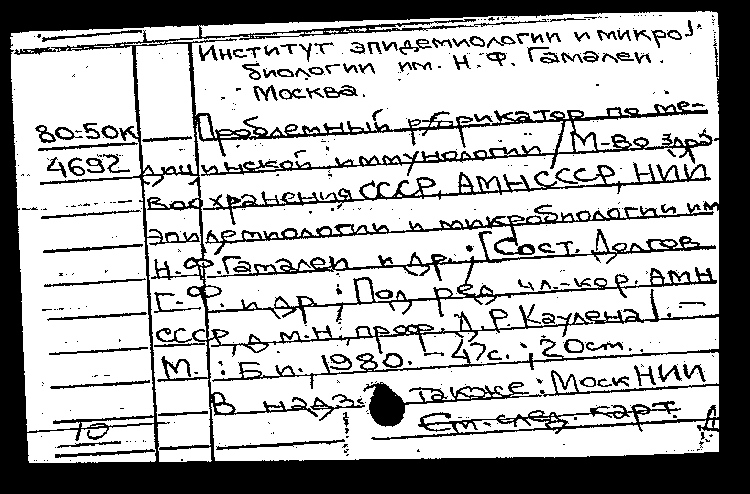 Институт эпидемиологии и микро-
биологии им. Н.Ф. Гамалеи.
Москва.
80-50к Проблемный рубрикатор по ме-
4692 дицинской иммунологии / М-во здра-
воохранения СССР, АМН СССР, НИИ
эпидемиологии и микробиологии им
Н.Ф. Гамалеи и др.; [Сост. Долгов
Г.Ф. и др; Под ред. чл.-кор. АМН
СССР, д.м.н., проф. Д.Р. Каулена]. —
М. : Б.и., 1980. - 47с. ; 20см.
В надз. также: Моск НИИ
См. след. карт.
10